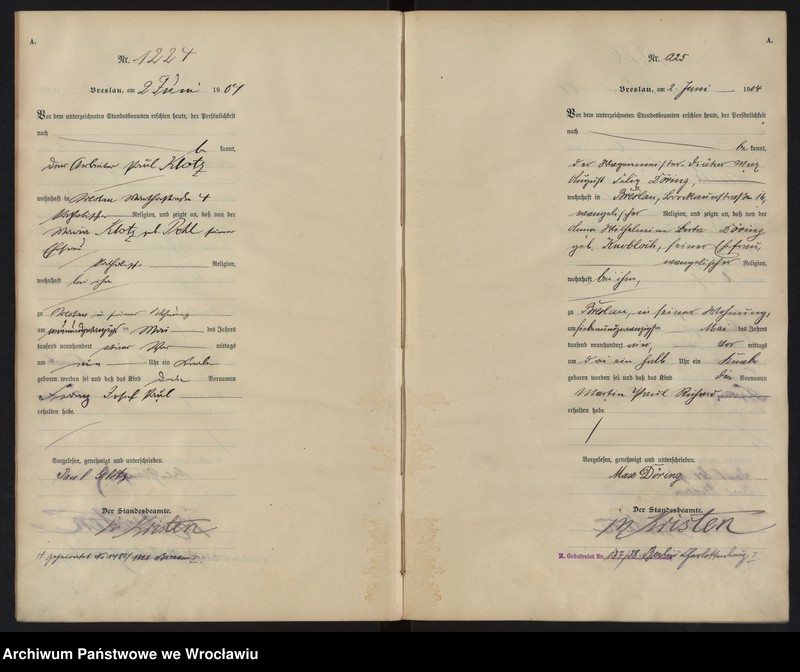 A.
Nr. 1224
Breslau, am 2 Juni 1904
Vor dem unterzeichneten Standesbeamten erschien heute, der Persönlichkeit
nach
be kannt,
der Arbeiter Paul Klotz
wohnhaft in Breslau 4
katholischer Religion, und zeigte an, daß von der
Klotz geb. seiner
Ehefrau
katholischer Religion,
wohnhaft bei ihm
zu Breslau in seiner Wohnung
am ten Mai des Jahres
tausend neunhundert vier Vor mittags
um neun Uhr ein Knabe
geboren worden sei und daß das Kind die Vornamen
Josef Paul
erhalten habe.
Vorgelesen, genehmigt und unterschrieben.
Paul Glotz
Der Standesbeamte.
Kristen
A.
Nr. 1225
Breslau, am 2. Juni 1904
Vor dem unterzeichneten Standesbeamten erschien heute, der Persönlichkeit
nach
be kannt,
der Wagenmeister Max
August Felix Döring,
wohnhaft in Breslau, 16,
evangelischer Religion, und zeigte an, daß von der
Anna Wilhelmine Berta Döring
geb. Knobloch, seiner Ehefrau,
evangelischer Religion,
wohnhaft bei ihm,
zu Breslau, in seiner Wohnung,
am siebenundzwanzigsten Mai des Jahres
tausend neunhundert vier, Vor mittags
um drei ein halb Uhr ein Knabe
geboren worden sei und daß das Kind die Vornamen
Martin Paul Richard
erhalten habe.
Vorgelesen, genehmigt und unterschrieben.
Max Döring
Der Standesbeamte.
Kristen
Berlin Charlottenburg
Archiwum Państwowe we Wrocławiu